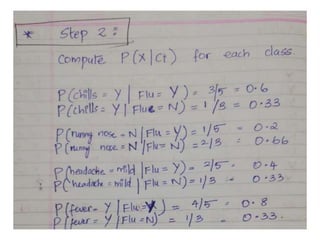 * Step 2:
Compute P(X|Ci) for each class.
P(chills = Y | Flu = Y) = 3/5 = 0.6
P(chills = Y | Flu = N) = 1/3 = 0.33
P(runny nose = N | Flu = Y) = 1/5 = 0.2
P(runny nose = N | Flu = N) = 2/3 = 0.66
P(headache = mild | Flu = Y) = 2/5 = 0.4
P(headache = mild | Flu = N) = 1/3 = 0.33
P(fever = Y | Flu = Y) = 4/5 = 0.8
P(fever = Y | Flu = N) = 1/3 = 0.33.